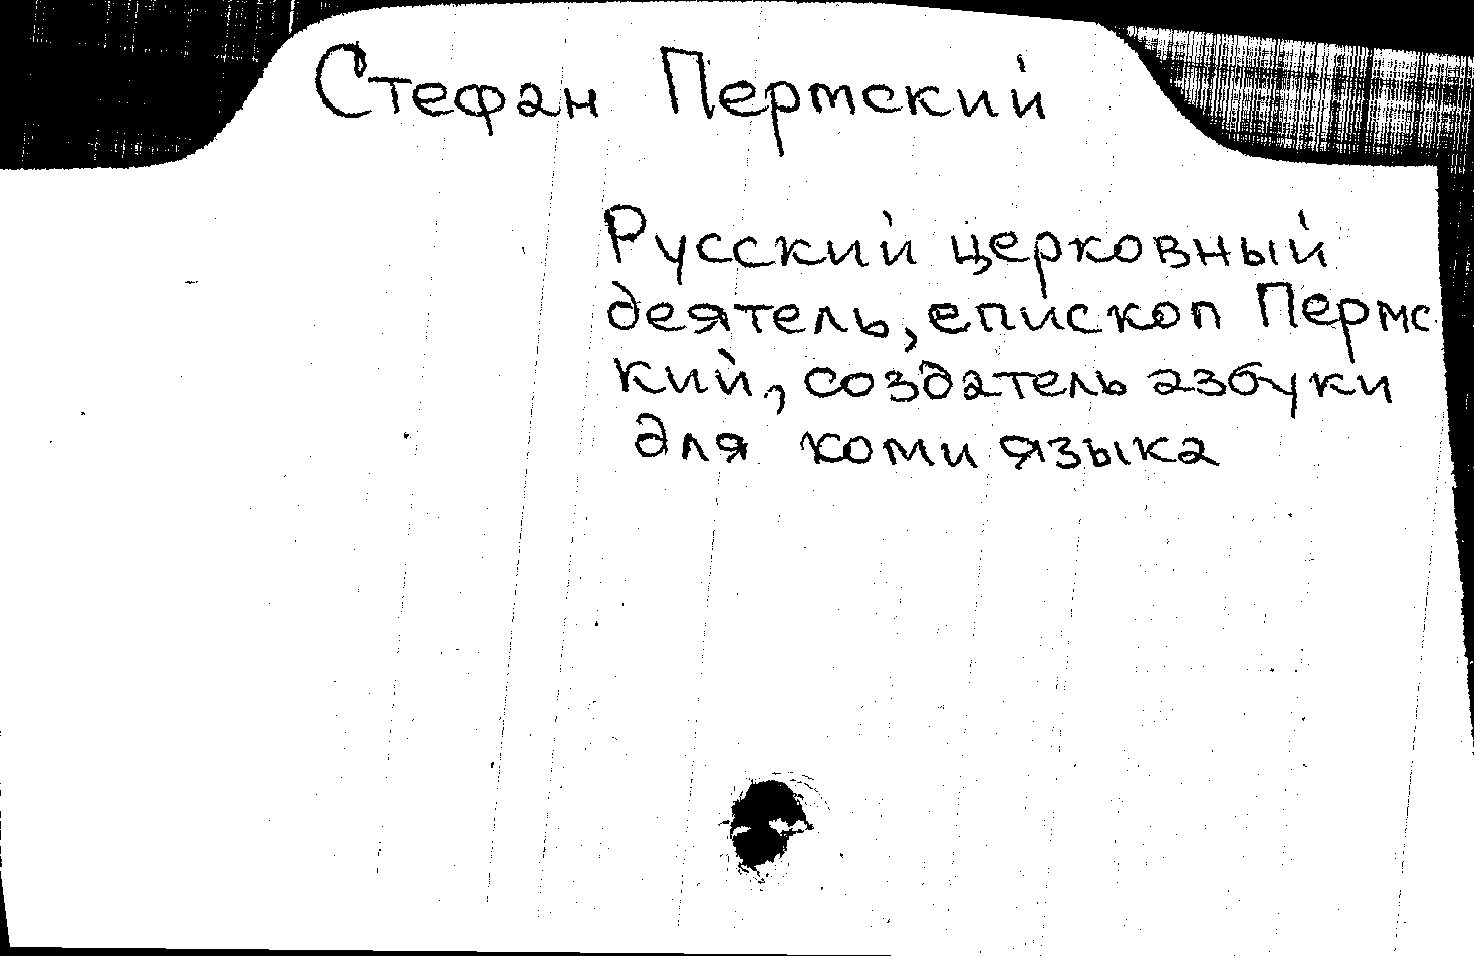 Стефан Пермский
Русский церковный
деятель, епископ Пермс
кий, создатель азбуки
для коми языка